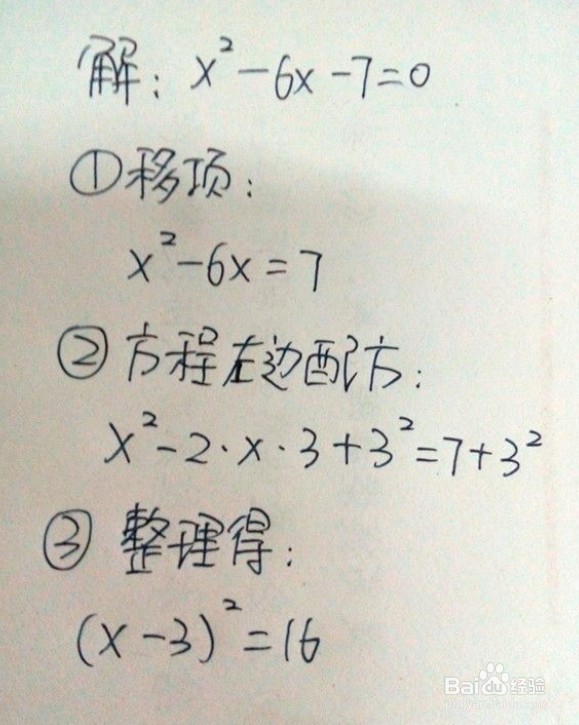 解：x²-6x-7=0
①移项：
x²-6x=7
②方程左边配方：
x²-2·x·3+3²=7+3²
③整理得：
(x-3)²=16
Baidu经验